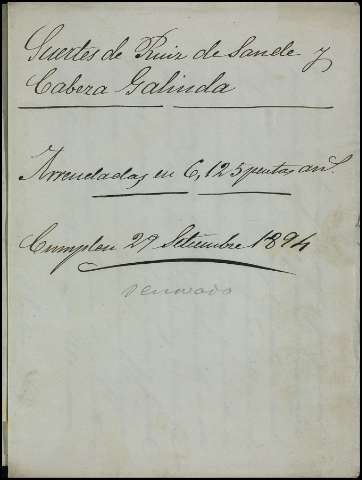 Suertes de Ruiz de Sande y
Cabeza Galinda
Arrendadas en 6,125 pesetas anl.
Cumplen 29 Setiembre 1894
renovado